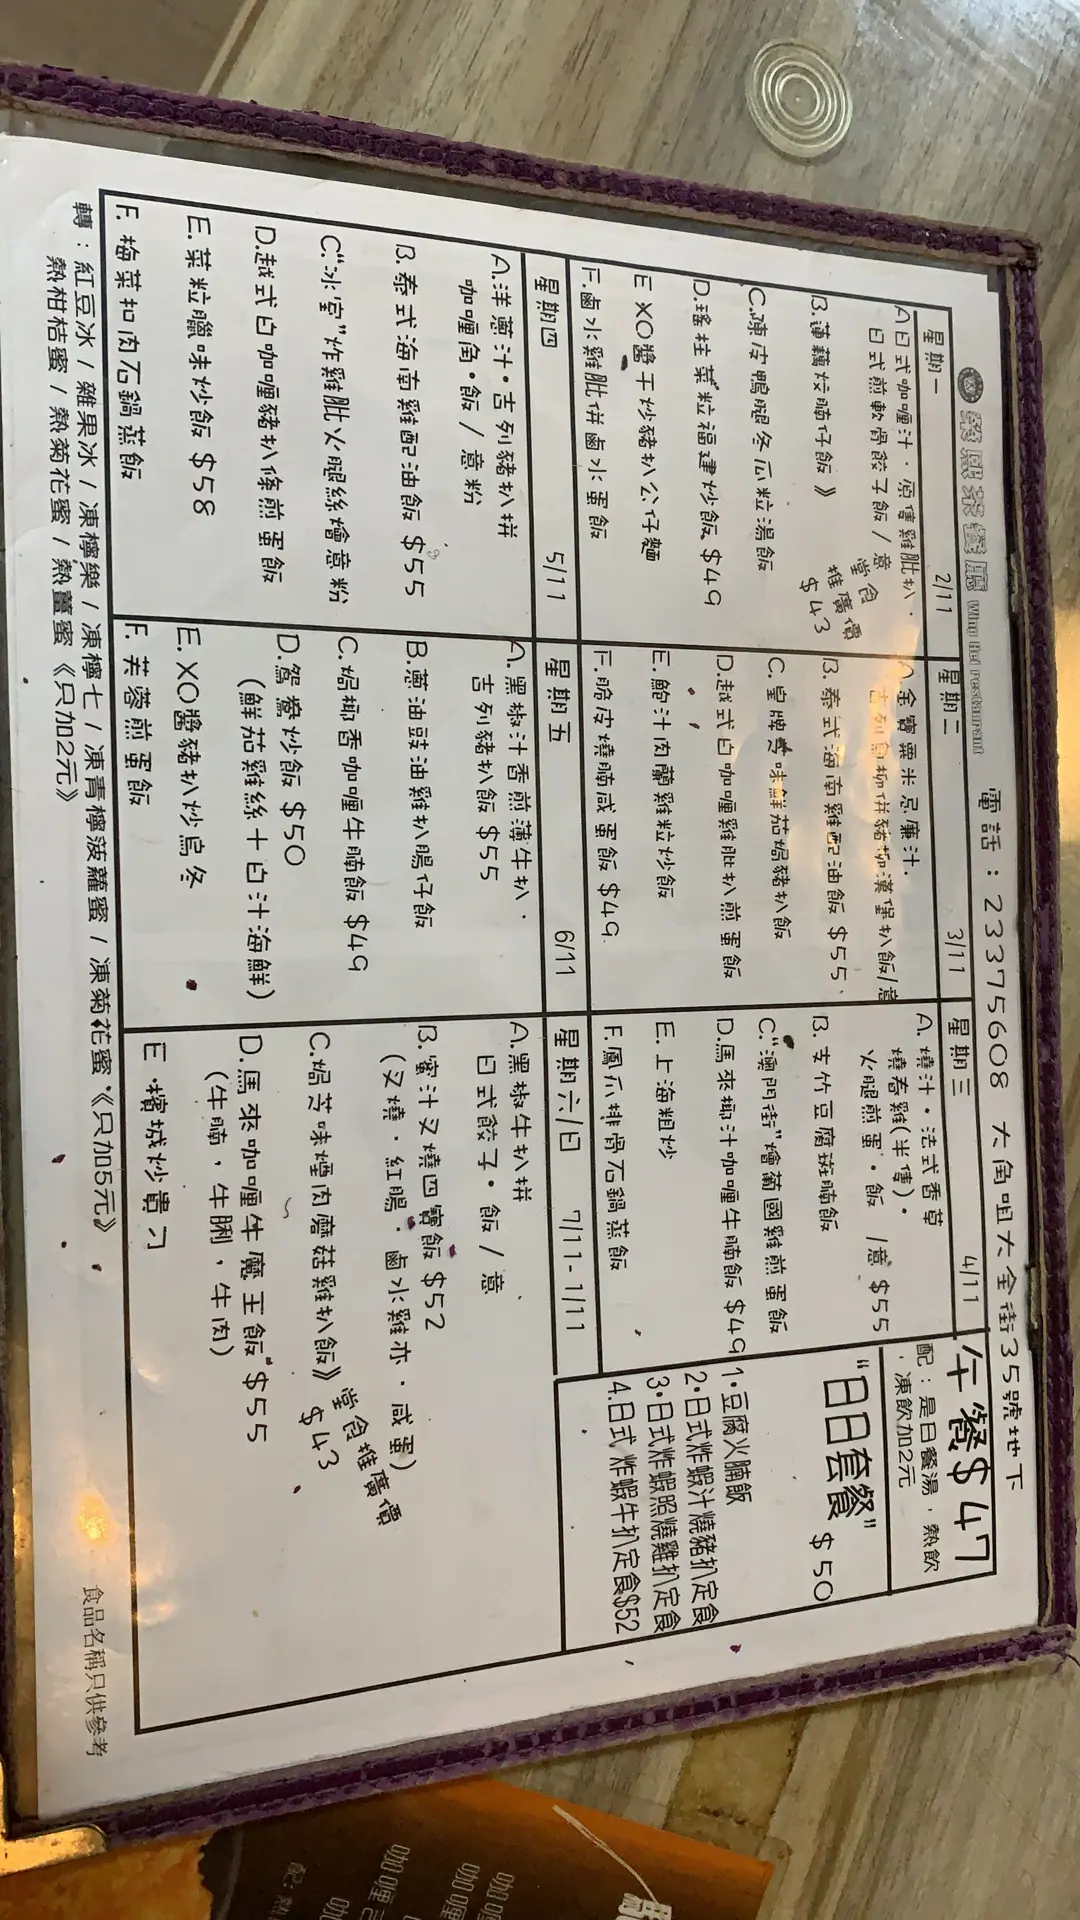 榮熙茶餐廳 Wing Hei restaurant
電話：23375608 大角咀大全街35號地下
午餐$47
配：是日餐湯，熱飲
，凍飲加2元
星期一 2/11
A日式咖喱汁．原隻雞肶扒．
日式煎軟骨餃子飯/意
B.蓮藕炆腩仔飯》
堂食
推廣價
$43
C.陳皮鴨腿冬瓜粒湯飯
D.瑤柱菜粒福建炒飯$49
E XO醬干炒豬扒公仔麵
F.鹵水雞肶併鹵水蛋飯
星期二 3/11
A金寶粟米忌廉汁．
古列魚柳併豬柳漢堡扒飯/意
B.泰式海南雞配油飯$55
C.皇牌芝味鮮茄焗豬扒飯
D.越式白咖喱雞肶扒煎蛋飯
E.鮑汁肉蘭雞粒炒飯
F.脆皮燒腩咸蛋飯$49
星期三 4/11
A.燒汁．法式香草
燒春雞(半隻)．
火腿煎蛋．飯/意$55
B.支竹豆腐斑腩飯
C."澳門街"燴葡國雞煎蛋飯
D.馬來椰汁咖喱牛腩飯$49
E.上海粗炒
F.鳳爪排骨石鍋蒸飯
"日日套餐"
$50
1.豆腐火腩飯
2.日式炸蝦汁燒豬扒定食
3.日式炸蝦照燒雞扒定食
4.日式炸蝦牛扒定食$52
星期四 5/11
A.洋蔥汁．吉列豬扒拼
咖喱角．飯/意粉
B.泰式海南雞配油飯$55
C."冰室"炸雞肶火腿絲燴意粉
D.越式白咖喱豬扒條煎蛋飯
E.菜粒臘味炒飯$58
F.梅菜扣肉石鍋蒸飯
星期五 6/11
A.黑椒汁香煎薄牛扒．
吉列豬扒飯$55
B.蔥油豉油雞扒腸仔飯
C.焗椰香咖喱牛腩飯$49
D.鴛鴦炒飯$50
(鮮茄雞絲十白汁海鮮)
E.XO醬豬扒炒烏冬
F.芙蓉煎蛋飯
星期六/日 7/11-1/11
A.黑椒牛扒拼
日式餃子．飯/意
B.蜜汁叉燒四寶飯$52
(叉燒．紅腸．鹵水雞亦．咸蛋)
C.焗芝味煙肉蘑菇雞扒飯》
堂食推廣價
$43
D.馬來咖喱牛魔王飯$55
(牛腩，牛脷，牛肉)
E.檳城炒貴刁
轉：紅豆冰/雜果冰/凍檸樂/凍檸七/凍青檸菠蘿蜜/凍菊花蜜《只加5元》
熱柑桔蜜/熱菊花蜜/熱薑蜜《只加2元》
食品名稱只供參考